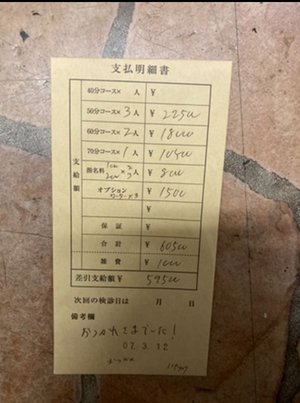 支払明細書
40分コース× 人 ¥
50分コース× 3人 ¥ 22500
60分コース× 2人 ¥ 18000
70分コース× 1人 ¥ 10500
支給額
指名料 ¥ 8000
オプション ¥ 1500
¥
保証 ¥
合計 ¥ 60500
雑費 ¥ 1000
差引支給額 ¥ 59500
次回の検診日は 月 日
備考欄
おつかれさまでした!
07.3.12